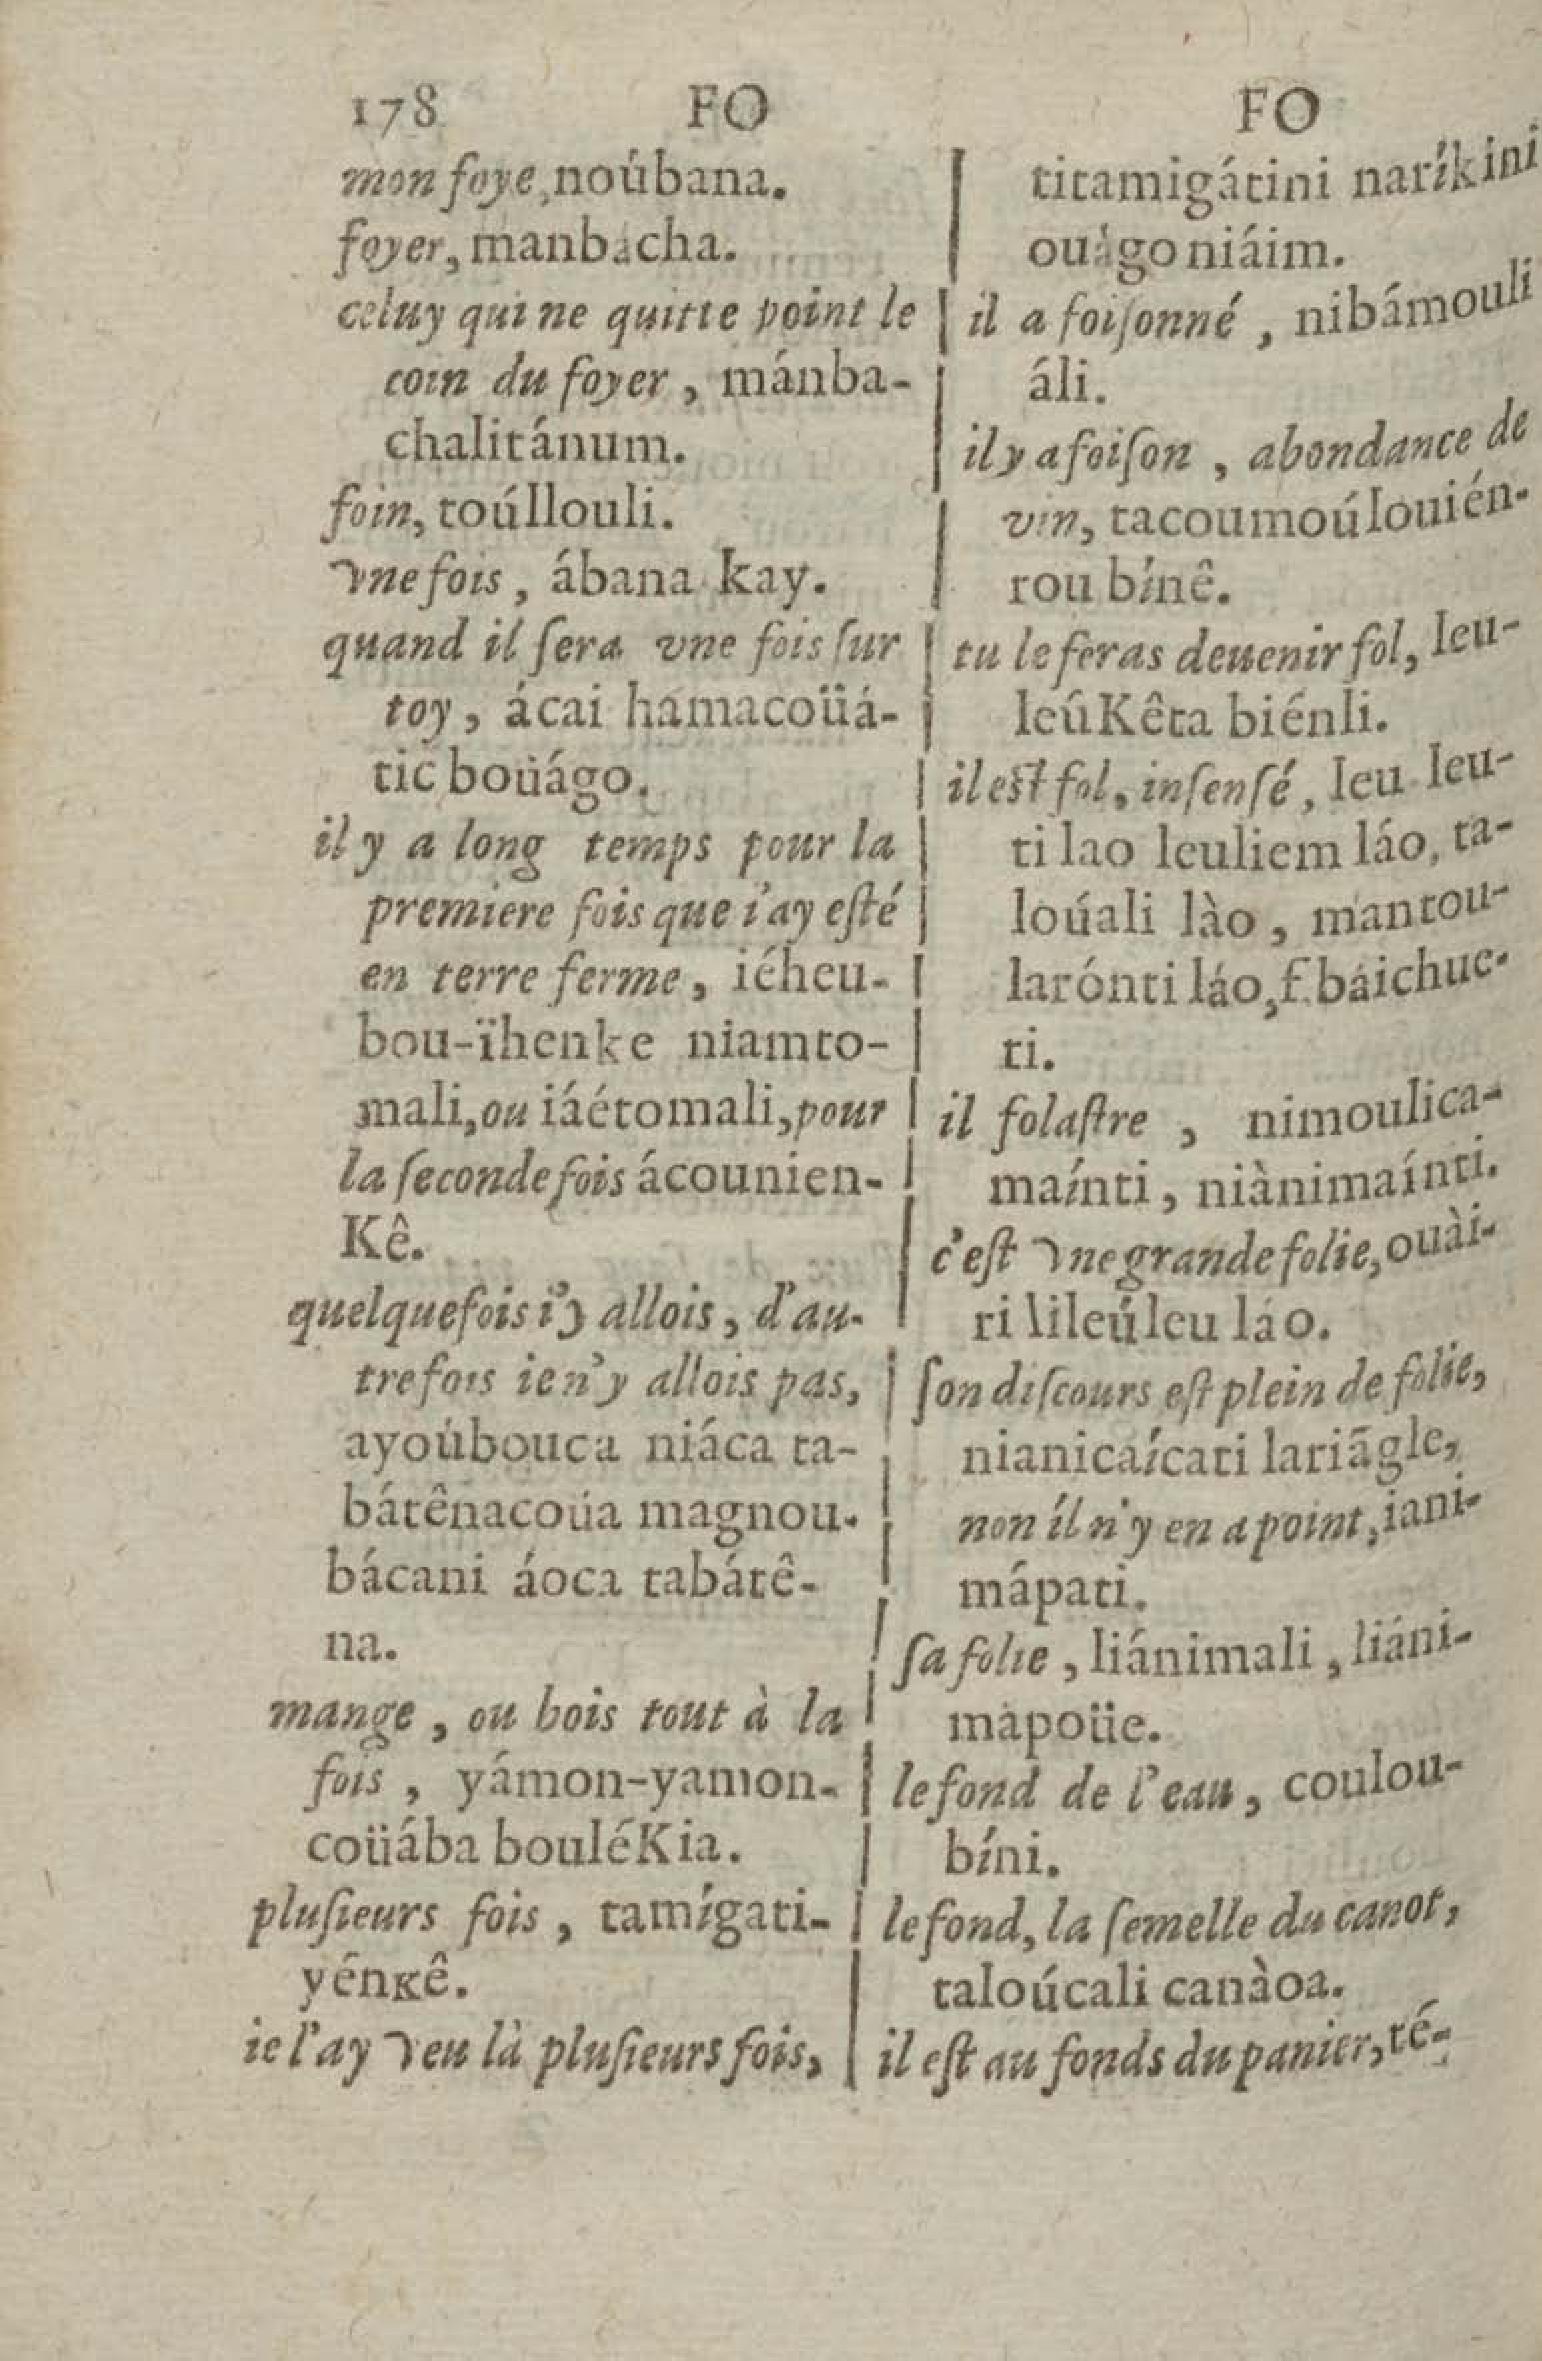 178 FO FO
mon foye, noúbana.
foyer, manbácha.
celuy qui ne quitte point le
coin du foyer, mánba-
chalitánum.
foin, toúllouli.
vne fois, ábana kay.
quand il ſera vne fois ſur
toy, ácai hámacoüá-
tic boüágo.
il y a long temps pour la
premiere fois que i'ay eſté
en terre ferme, iéheu-
bou-ïhenke niamto-
mali, ou iáétomali, pour
la ſeconde fois ácounien-
Kê.
quelquefois i'y allois, d'au-
trefois ie n'y allois pas,
ayoúbouca niáca ta-
bátênacoúa magnou-
bácani áoca tabátê-
na.
mange, ou bois tout à la
fois, yámon-yamon-
coüába bouléKia.
pluſieurs fois, tamígati-
yénKê.
ie l'ay veu là pluſieurs fois,
titamigátini naríkini
ouágo niáim.
il a foiſonné, nibámouli
áli.
il y a foiſon, abondance de
vin, tacoumoúlouién-
rou bínê.
tu le feras deuenir fol, leu-
leúKêta biénli.
il eſt fol, inſenſé, leu leu-
ti lao leuliem láo, ta-
loúali lào, mantou-
larónti láo, f. báichue-
ti.
il folaſtre, nimoulica-
maínti, niànimaínti.
c'eſt vne grande folie, ouài-
ri lileúleu láo.
ſon diſcours eſt plein de folie,
nianicaícati lariãgle,
non íl n'y en a point, iani-
mápati.
ſa folie, liánimali, liáni-
mápoüe.
le fond de l'eau, coulou-
bíni.
le fond, la ſemelle du canot,
taloúcali canàoa.
il eſt au fonds du panier, té-